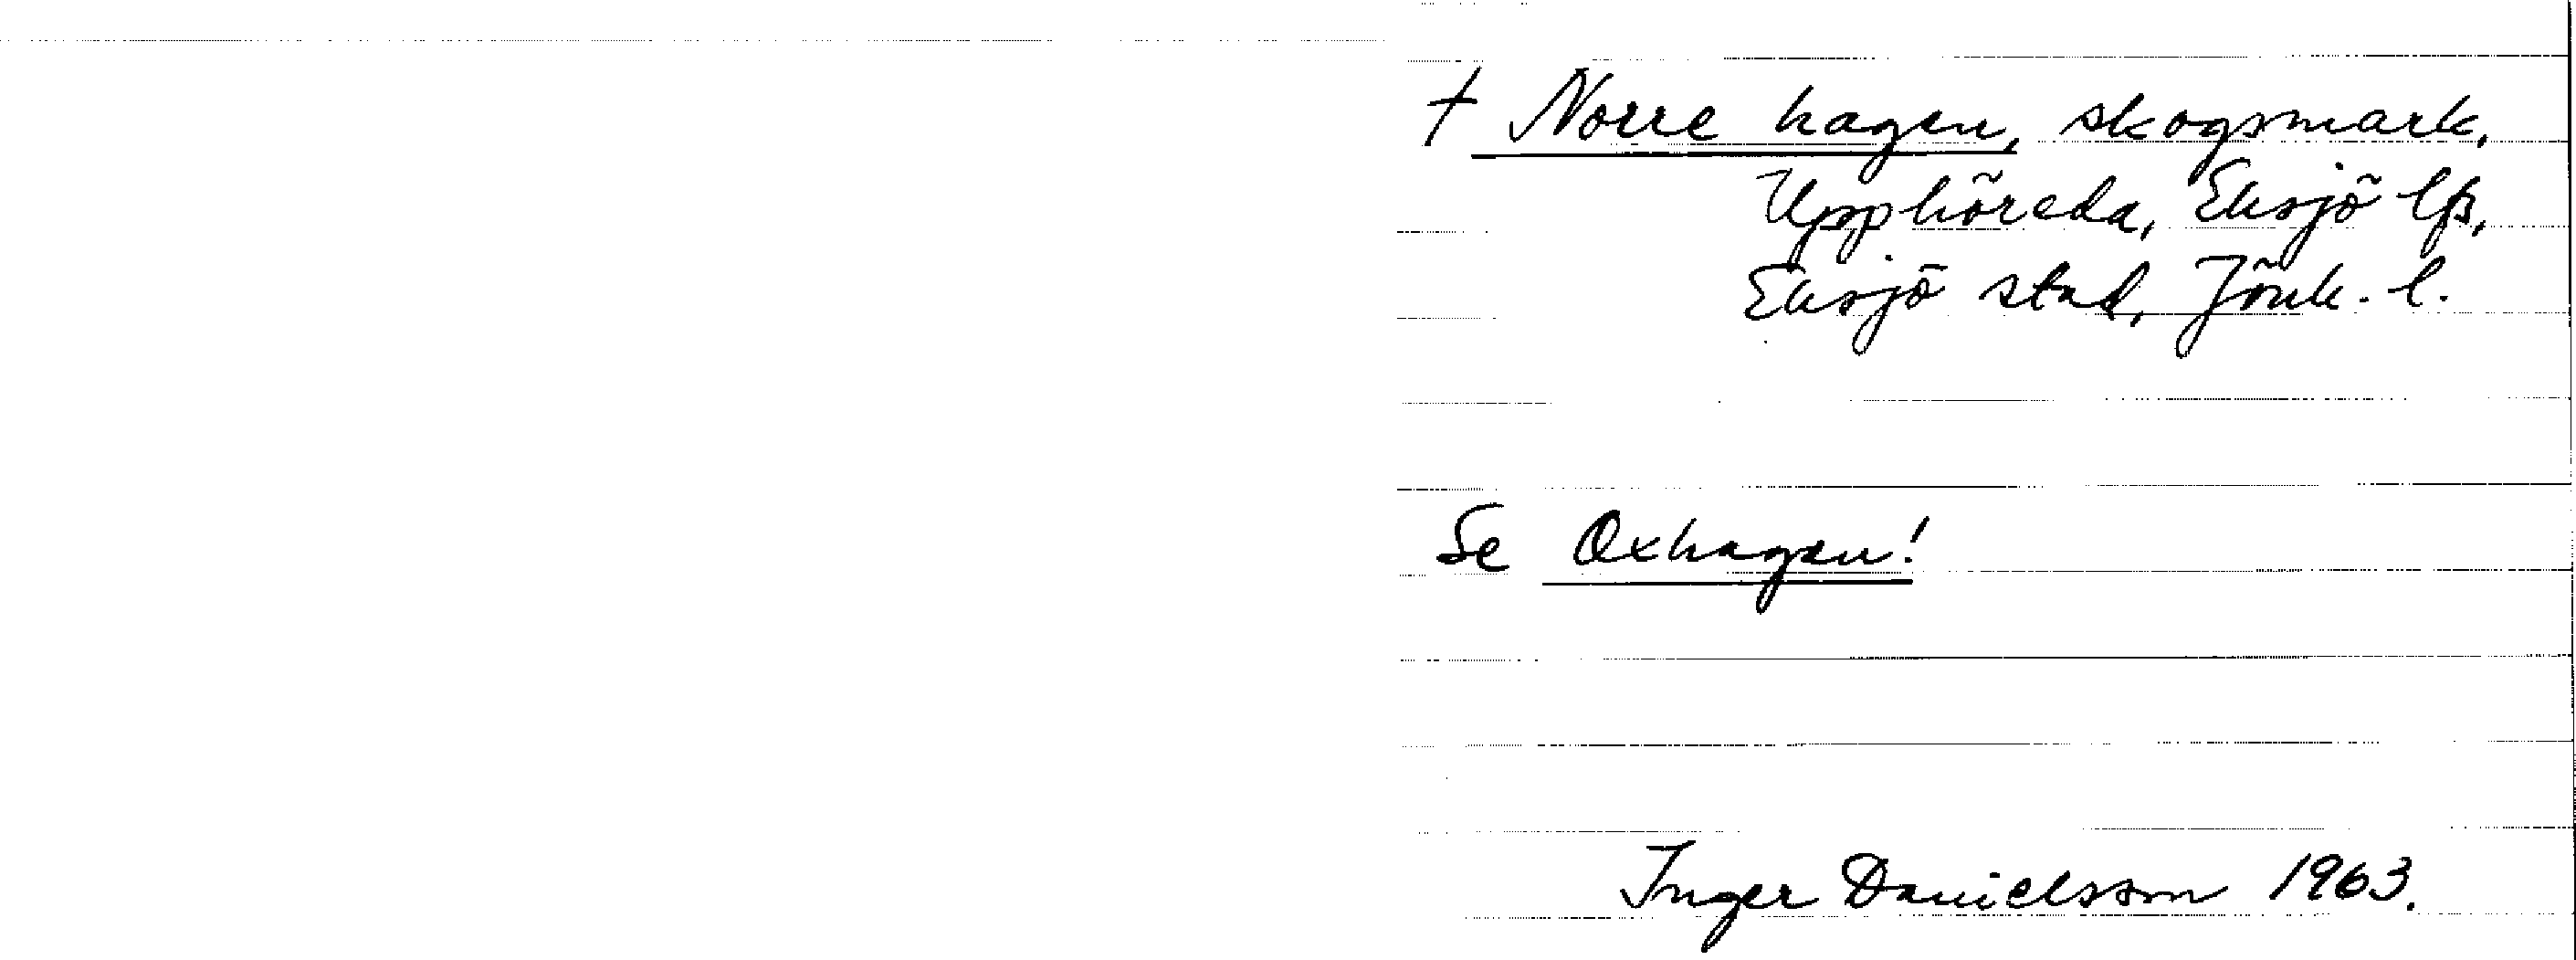 † Norre hagen, skogsmark,
Upphöreda, Eksjö lfs,
Eksjö stad, Jönk. l.
Se Oxhagen!
Inger Danielsson 1963.